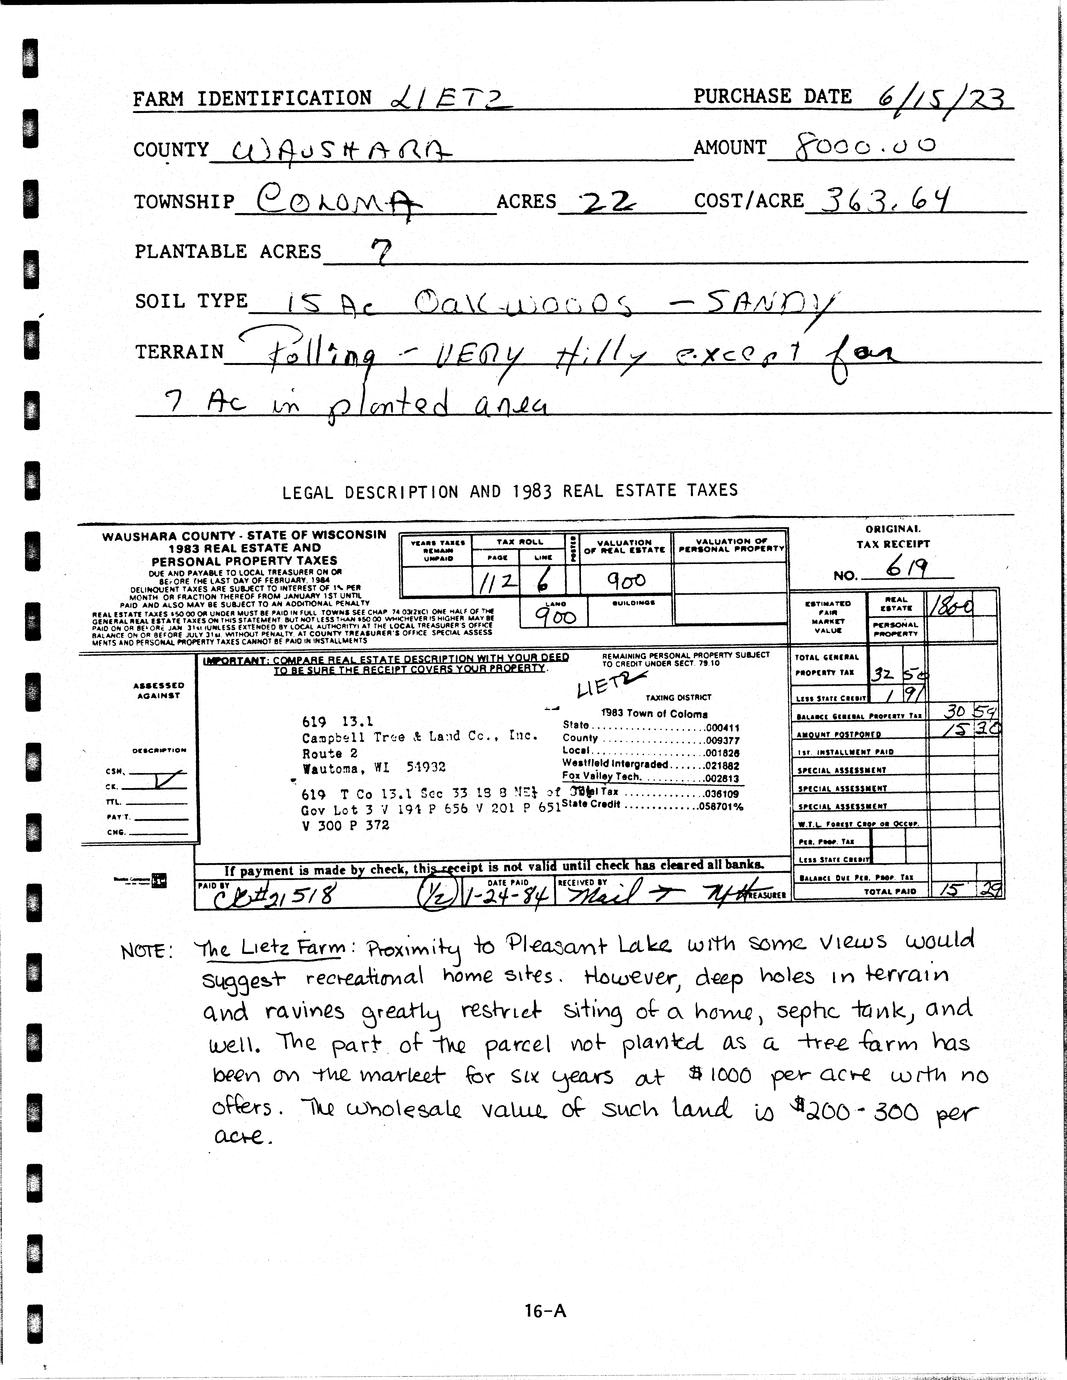 FARM IDENTIFICATION LIETZ PURCHASE DATE 6/15/73
COUNTY WAUSHARA AMOUNT 8000.00
TOWNSHIP COLOMA ACRES 22 COST/ACRE 363.64
PLANTABLE ACRES 7
SOIL TYPE 15 Ac Oak-woods - SANDY
TERRAIN Rolling - VERY Hilly except for
7 Ac in planted area
LEGAL DESCRIPTION AND 1983 REAL ESTATE TAXES
WAUSHARA COUNTY - STATE OF WISCONSIN
1983 REAL ESTATE AND
PERSONAL PROPERTY TAXES
DUE AND PAYABLE TO LOCAL TREASURER ON OR
BEFORE THE LAST DAY OF FEBRUARY, 1984
DELINQUENT TAXES ARE SUBJECT TO INTEREST OF 1% PER
MONTH OR FRACTION THEREOF FROM JANUARY 1ST UNTIL
PAID AND ALSO MAY BE SUBJECT TO AN ADDITIONAL PENALTY
REAL ESTATE TAXES $50.00 OR UNDER MUST BE PAID IN FULL TOWNS SEE CHAP 74 03(2)(C) ONE HALF OF THE
GENERAL REAL ESTATE TAXES ON THIS STATEMENT BUT NOT LESS THAN $50.00 WHICHEVER IS HIGHER MAY BE
PAID ON OR BEFORE JAN 31st (UNLESS EXTENDED BY LOCAL AUTHORITY) AT THE LOCAL TREASURER'S OFFICE
BALANCE ON OR BEFORE JULY 31st WITHOUT PENALTY AT COUNTY TREASURER'S OFFICE SPECIAL ASSESS
MENTS AND PERSONAL PROPERTY TAXES CANNOT BE PAID IN INSTALLMENTS
YEARS TAXES REMAIN UNPAID
TAX ROLL
PAGE LINE
112 6
POSTED
VALUATION OF REAL ESTATE
900
LAND
900
BUILDINGS
VALUATION OF PERSONAL PROPERTY
ORIGINAL
TAX RECEIPT
NO. 619
ESTIMATED FAIR MARKET VALUE
REAL ESTATE 1800
PERSONAL PROPERTY
TOTAL GENERAL
PROPERTY TAX 32 50
LESS STATE CREDIT 1 91
BALANCE GENERAL PROPERTY TAX 30 59
AMOUNT POSTPONED 15 30
1ST. INSTALLMENT PAID
SPECIAL ASSESSMENT
SPECIAL ASSESSMENT
SPECIAL ASSESSMENT
W.T.L. FOREST CROP OR OCCUP.
PER. PROP. TAX
LESS STATE CREDIT
BALANCE DUE PER. PROP. TAX
TOTAL PAID 15 29
ASSESSED
AGAINST
DESCRIPTION
CSH.
CK.
TTL.
PAY T.
CHG.
IMPORTANT: COMPARE REAL ESTATE DESCRIPTION WITH YOUR DEED
TO BE SURE THE RECEIPT COVERS YOUR PROPERTY.
REMAINING PERSONAL PROPERTY SUBJECT
TO CREDIT UNDER SECT. 79.10
LIETZ
TAXING DISTRICT
1983 Town of Coloma
State .000411
County .009377
Local .001826
Westfield Intergraded .021882
Fox Valley Tech. .002613
Total Tax .036109
State Credit .058701%
619 13.1
Campbell Tree & Land Co., Inc.
Route 2
Wautoma, WI 54932
619 T Co 13.1 Sec 33 18 8 NE¼ of
Gov Lot 3 V 194 P 656 V 201 P 651
V 300 P 372
If payment is made by check, this receipt is not valid until check has cleared all banks.
PAID BY CK#21518 (1/2) DATE PAID 1-24-84 RECEIVED BY Mail TREASURER
NOTE: The Lietz Farm: Proximity to Pleasant Lake with some views would
suggest recreational home sites. However, deep holes in terrain
and ravines greatly restrict siting of a home, septic tank, and
well. The part of the parcel not planted as a tree farm has
been on the market for six years at $1000 per acre with no
offers. The wholesale value of such land is $200-300 per
acre.
16-A